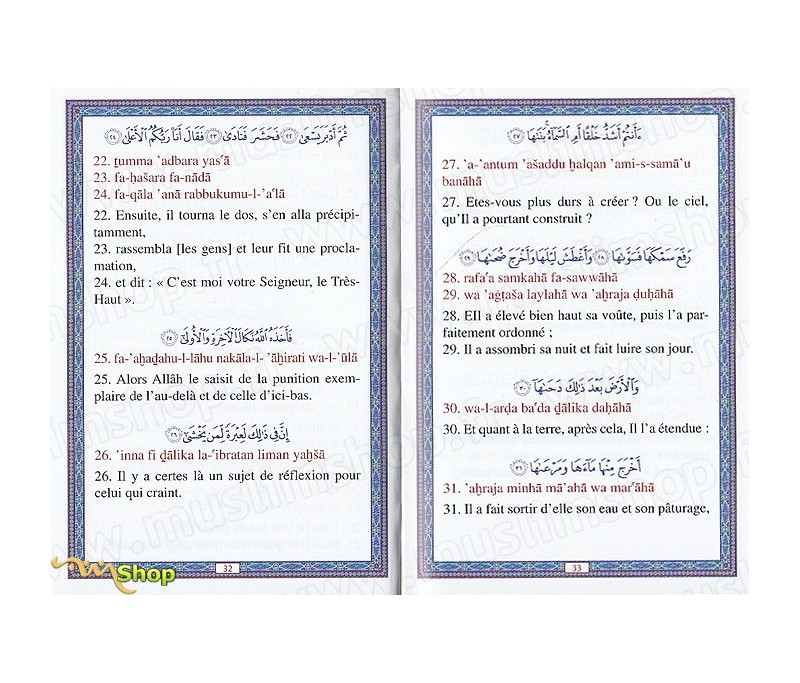 ثُمَّ أَدْبَرَ يَسْعَىٰ ﴿٢٢﴾ فَحَشَرَ فَنَادَىٰ ﴿٢٣﴾ فَقَالَ أَنَا۠ رَبُّكُمُ ٱلْأَعْلَىٰ ﴿٢٤﴾
22. ṯumma ’adbara yasʿā
23. fa-ḥašara fa-nādā
24. fa-qāla ’anā rabbukumu-l-’aʿlā
22. Ensuite, il tourna le dos, s’en alla précipi-
tamment,
23. rassembla [les gens] et leur fit une procla-
mation,
24. et dit : « C’est moi votre Seigneur, le Très-
Haut ».
فَأَخَذَهُ ٱللَّهُ نَكَالَ ٱلْآخِرَةِ وَٱلْأُولَىٰ ﴿٢٥﴾
25. fa-’aḫaḏahu-l-lāhu nakāla-l- ’āḫirati wa-l-’ūlā
25. Alors Allâh le saisit de la punition exem-
plaire de l’au-delà et de celle d’ici-bas.
إِنَّ فِي ذَٰلِكَ لَعِبْرَةً لِّمَن يَخْشَىٰ ﴿٢٦﴾
26. ’inna fi ḏālika la-ʿibratan liman yaḫšā
26. Il y a certes là un sujet de réflexion pour
celui qui craint.
32
Shop
ءَأَنتُمْ أَشَدُّ خَلْقًا أَمِ ٱلسَّمَاءُ ۚ بَنَىٰهَا ﴿٢٧﴾
27. ’a-’antum ’ašaddu ḫalqan ’ami-s-samā’u
banāhā
27. Etes-vous plus durs à créer ? Ou le ciel,
qu’Il a pourtant construit ?
رَفَعَ سَمْكَهَا فَسَوَّىٰهَا ﴿٢٨﴾ وَأَغْطَشَ لَيْلَهَا وَأَخْرَجَ ضُحَىٰهَا ﴿٢٩﴾
28. rafaʿa samkahā fa-sawwāhā
29. wa ’aġṭaša laylahā wa ’aḫraja ḍuḥāhā
28. EIl a élevé bien haut sa voûte, puis l’a par-
faitement ordonné ;
29. Il a assombri sa nuit et fait luire son jour.
وَٱلْأَرْضَ بَعْدَ ذَٰلِكَ دَحَىٰهَا ﴿٣٠﴾
30. wa-l-arḍa baʿda ḏālika daḥāhā
30. Et quant à la terre, après cela, Il l’a étendue :
أَخْرَجَ مِنْهَا مَاءَهَا وَمَرْعَىٰهَا ﴿٣١﴾
31. ’aḫraja minhā mā’ahā wa marʿāhā
31. Il a fait sortir d’elle son eau et son pâturage,
33